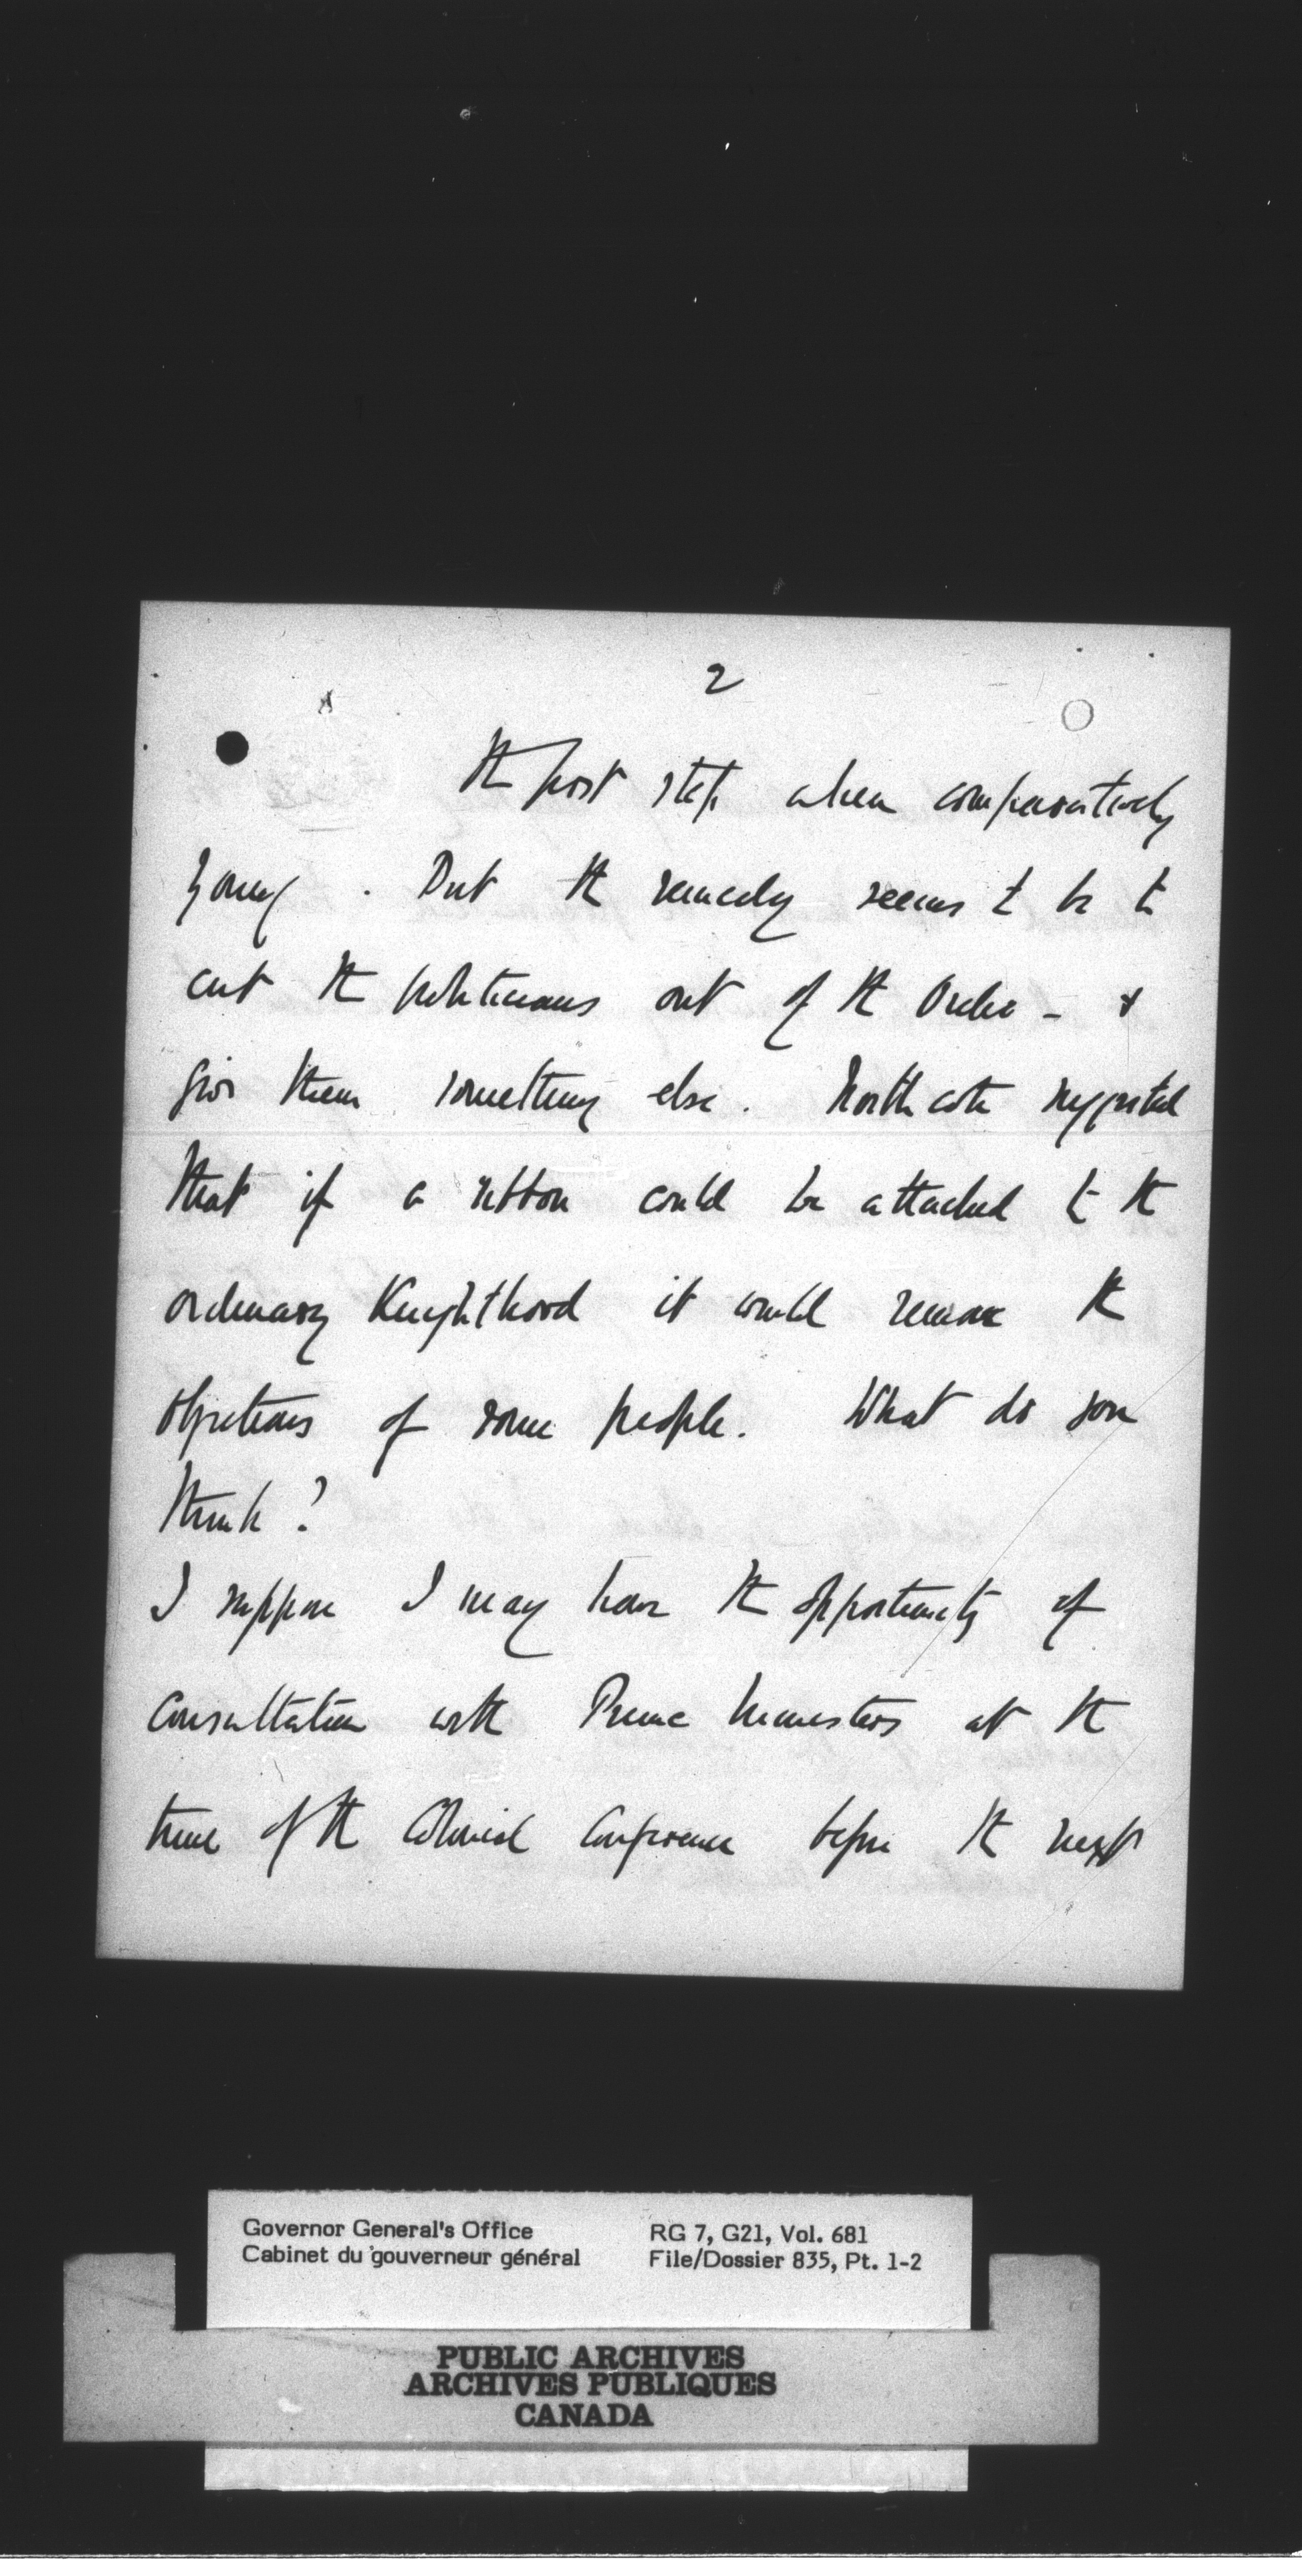 2
the first step when comparatively
young. But the remedy seems to be to
cut the politicians out of the Order - &
give them something else. Northcote suggested
that if a ribbon could be attached to the
ordinary Knighthood it would remove the
objections of some people. What do you
think?
I suppose I may have the opportunity of
consultation with Prime Ministers at the
time of the Colonial Conference before the next
Governor General's Office
Cabinet du gouverneur général
RG 7, G21, Vol. 681
File/Dossier 835, Pt. 1-2
PUBLIC ARCHIVES
ARCHIVES PUBLIQUES
CANADA